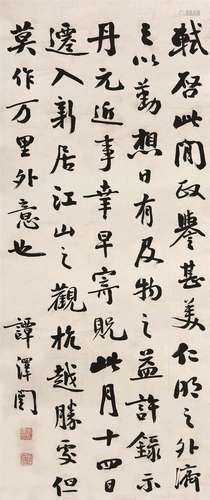 軾啓此間政譽甚美仁明之外濟
之以勤想日有及物之益許錄示
丹元近事幸早寄貺此月十四日
遷入新居江山之觀杭越勝處但
莫作万里外意也
譚澤闓